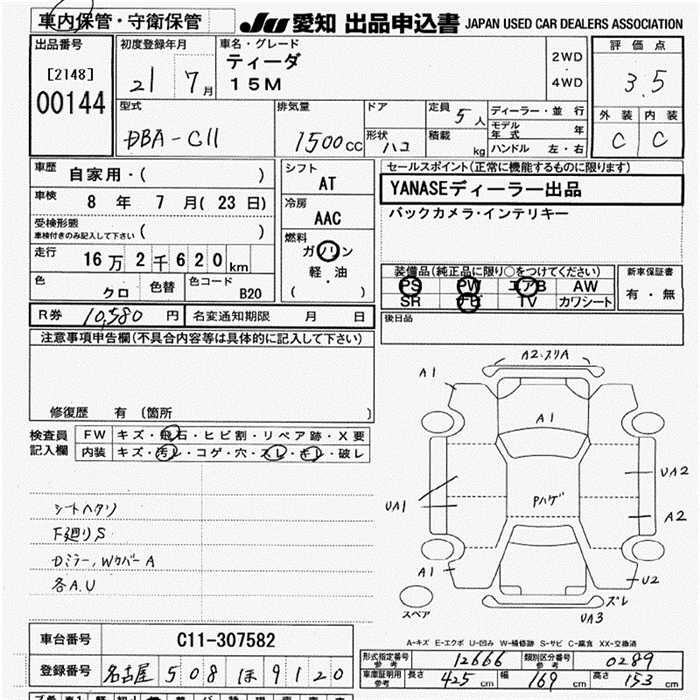 車内保管・守衛保管 JU 愛知 出品申込書 JAPAN USED CAR DEALERS ASSOCIATION
出品番号 初度登録年月 車名・グレード 評価点
[2148] 21 7月 ティーダ 2WD・4WD 3.5
00144 15M
型式 排気量 ドア 定員 5人 ディーラー・並行 外装 内装
モデル年式 年
DBA-C11 1500cc 形状 ハコ 積載 kg ハンドル 左・右 C C
車歴 自家用・( ) シフト AT セールスポイント(正常に機能するものに限ります)
車検 8年 7月(23日) 冷房 AAC YANASEディーラー出品
受検形態 車検付きのみ記入して下さい ( ) バックカメラ・インテリキー
走行 16万2千620km 燃料 ガソリン 軽・油 ( )
色 クロ 色替 色コード B20
装備品(純正品に限り○をつけてください) 新車保証書
PS PW エアB AW 有・無
SR TV カワシート
R券 10,380円 名変通知期限 月 日 後日品
注意事項申告欄(不具合内容等は具体的に記入して下さい)
修復歴 有(箇所 )
検査員記入欄 FW キズ・飛石・ヒビ割・リペア跡・X要
内装 キズ・汚レ・コゲ・穴・スレ・キレ・破レ
シートヘタリ
F廻りS
Dミラー、WカバーA
各A.U
A2・スリA
A1
A1
UA2
UA1
Pハゲ
A2
A1
U2
スペア
ズレ
UA3
A-キズ E-エクボ U-凹み W-補修跡 S-サビ C-腐食 XX-交換済
車台番号 C11-307582
登録番号 名古屋 508 ほ 9120
形式指定番号 参考 12666 類別区分番号 参考 0289
車庫証明用 参考 長さ 425cm 幅 169cm 高さ 153cm